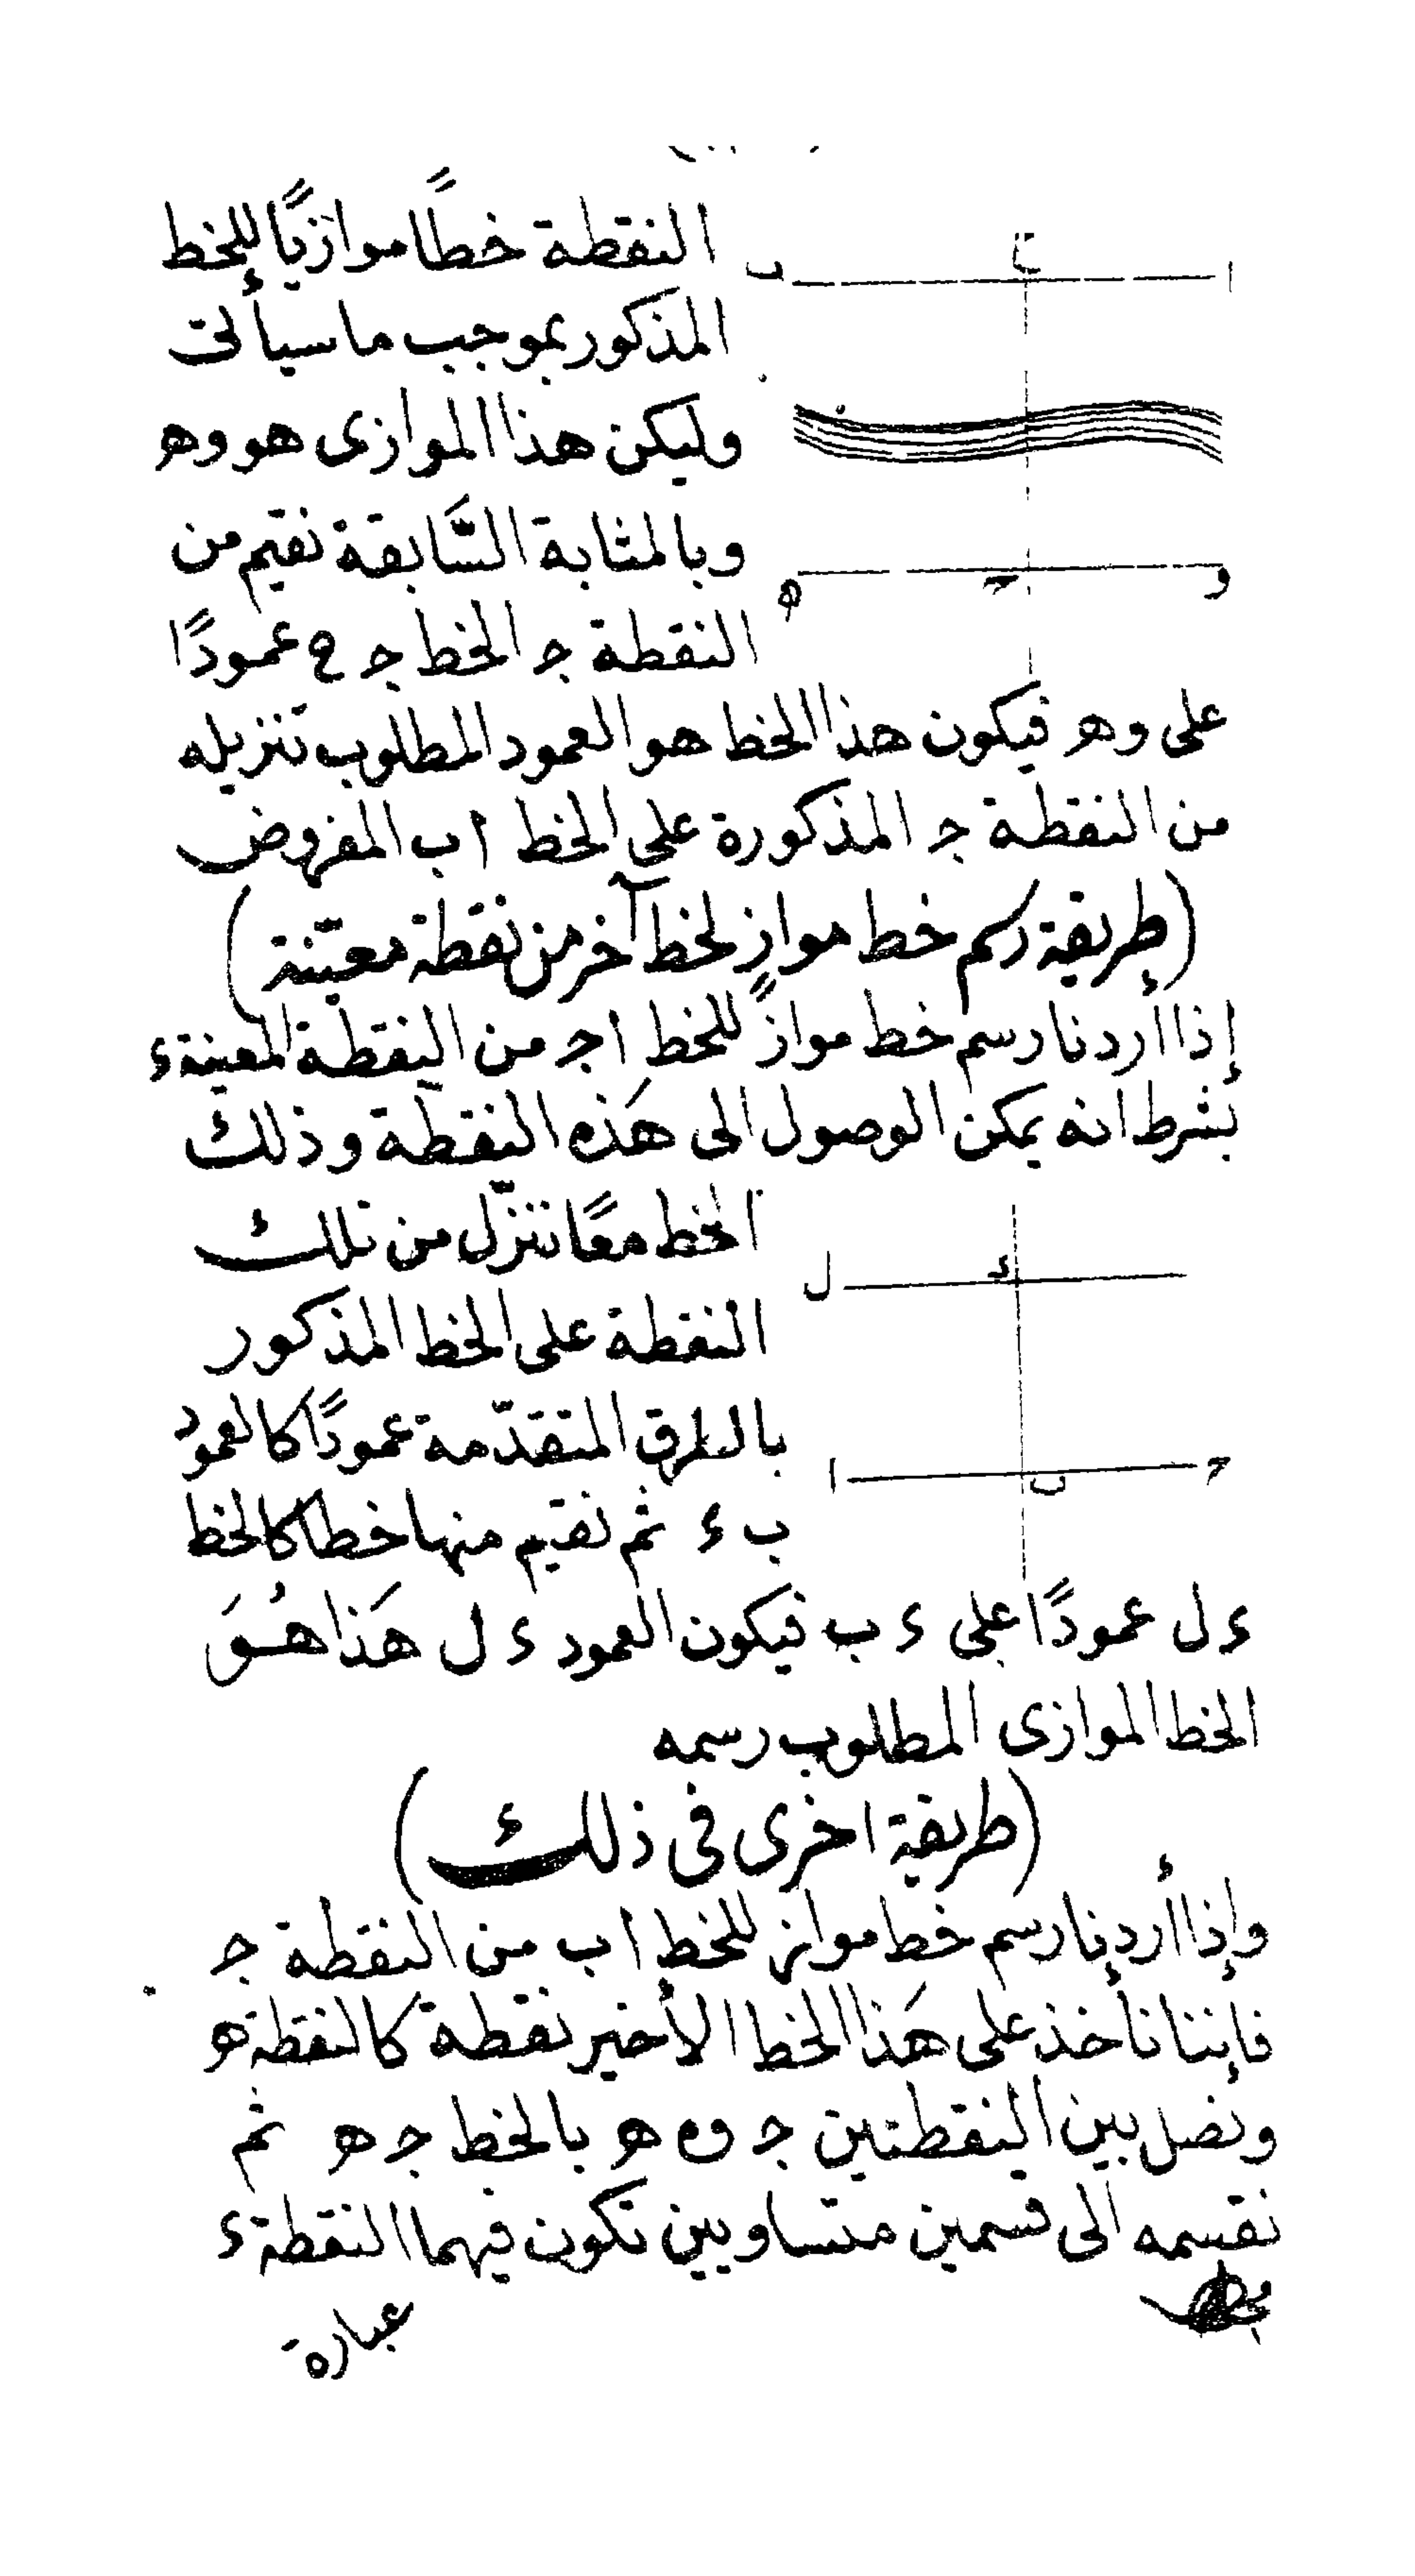 النقطة خطًا موازيًا للخط
المذكور بموجب ما سيأتى
وليكن هذا الموازى هو وه
وبالمثابة السَّابقة نقيم من
النقطة جـ الخط جـ ح عمودًا
على وهـ فيكون هذا الخط هو العمود المطلوب تنزيله
من النقطة جـ المذكورة على الخط اب المفروض
(طريقة رسم خط موازٍ لخط آخر من نقطة معيّنة)
إذا أردنا رسم خط موازٍ للخط اجـ من النقطة المعينة ء
بشرط انه يمكن الوصول الى هَذه النقطة وذلك
الخط معًا ننزّل من تلك
النقطة على الخط المذكور
بالطرق المتقدّمة عمودًا كالعمود
ب ء ثم نقيم منها خطا كالخط
ء ل عمودًا على ء ب فيكون العمود ء ل هَذا هُوَ
الخط الموازى المطلوب رسمه
(طريقة اخرى فى ذلك)
وإذا أردنا رسم خط مواز للخط اب من النقطة جـ
فإننا نأخذ على هَذا الخط الأخير نقطة كالنقطة هـ
ونصل بين النقطتين جـ و هـ بالخط جـ هـ ثم
نقسمه الى قسمين متساويين تكون فيهما النقطة ء
عبارة
ا
ح
ب
و
جـ
ه
ل
ء
ا
ب
جـ